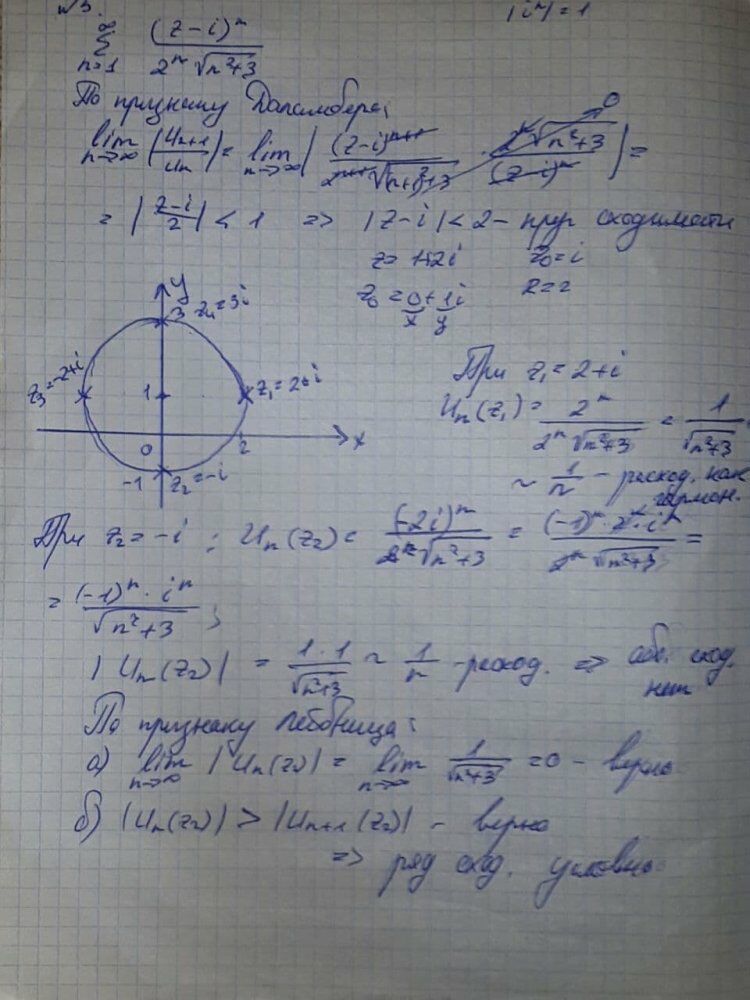 №3.
|iⁿ| = 1
∞ Σ n=1 (z-i)ⁿ / 2ⁿ √n²+3
По признаку Даламбера:
lim n→∞ |Un+1 / Un| = lim n→∞ | (z-i)ⁿ⁺¹ / 2ⁿ⁺¹ √(n+1)²+3 · 2ⁿ √n²+3 / (z-i)ⁿ | =
0
= | z-i / 2 | < 1 => |z-i| < 2 - круг сходимости
z0 = i
z0 = 0 + 1i
x y
R = 2
y
3 z4 = 3i
z3 = -2+i
1
z1 = 2+i
0 2 x
-1 z2 = -i
При z1 = 2+i
Un(z1) = 2ⁿ / 2ⁿ √n²+3 = 1 / √n²+3
~ 1/n - расход. как
гармон.
При z2 = -i : Un(z2) = (-2i)ⁿ / 2ⁿ √n²+3 = (-1)ⁿ · 2ⁿ · iⁿ / 2ⁿ √n²+3 =
= (-1)ⁿ · iⁿ / √n²+3 ;
|Un(z2)| = 1·1 / √n²+3 ~ 1/n - расход. => абс. сход.
нет
По признаку Лейбница:
а) lim n→∞ |Un(z2)| = lim n→∞ 1 / √n²+3 = 0 - верно
б) |Un(z2)| > |Un+1(z2)| - верно
=> ряд сход. условно